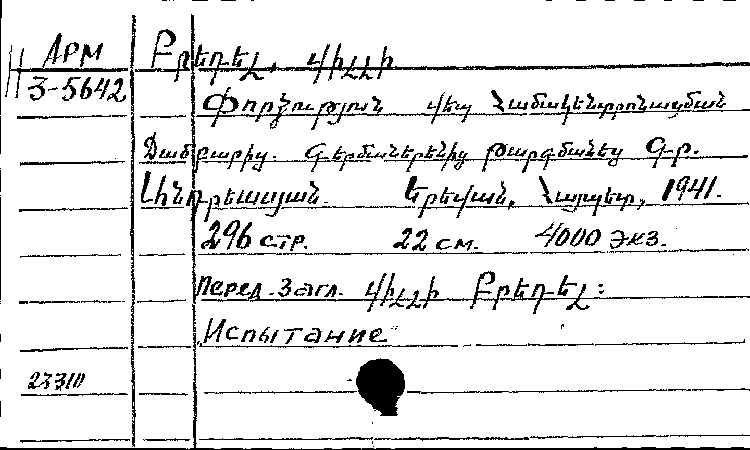 АРМ Բրեդել, Վիլլի
3-5642
Փորձություն վեպ Համակենտրոնացման
Ճամբարից. Գերմաներենից թարգմանեց Գ-ր.
Երեվան, Հայպետ, 1941.
296 стр. 22 см. 4000 экз.
Перед. Загл. Վիլլի Բրեդել:
Испытание
23310